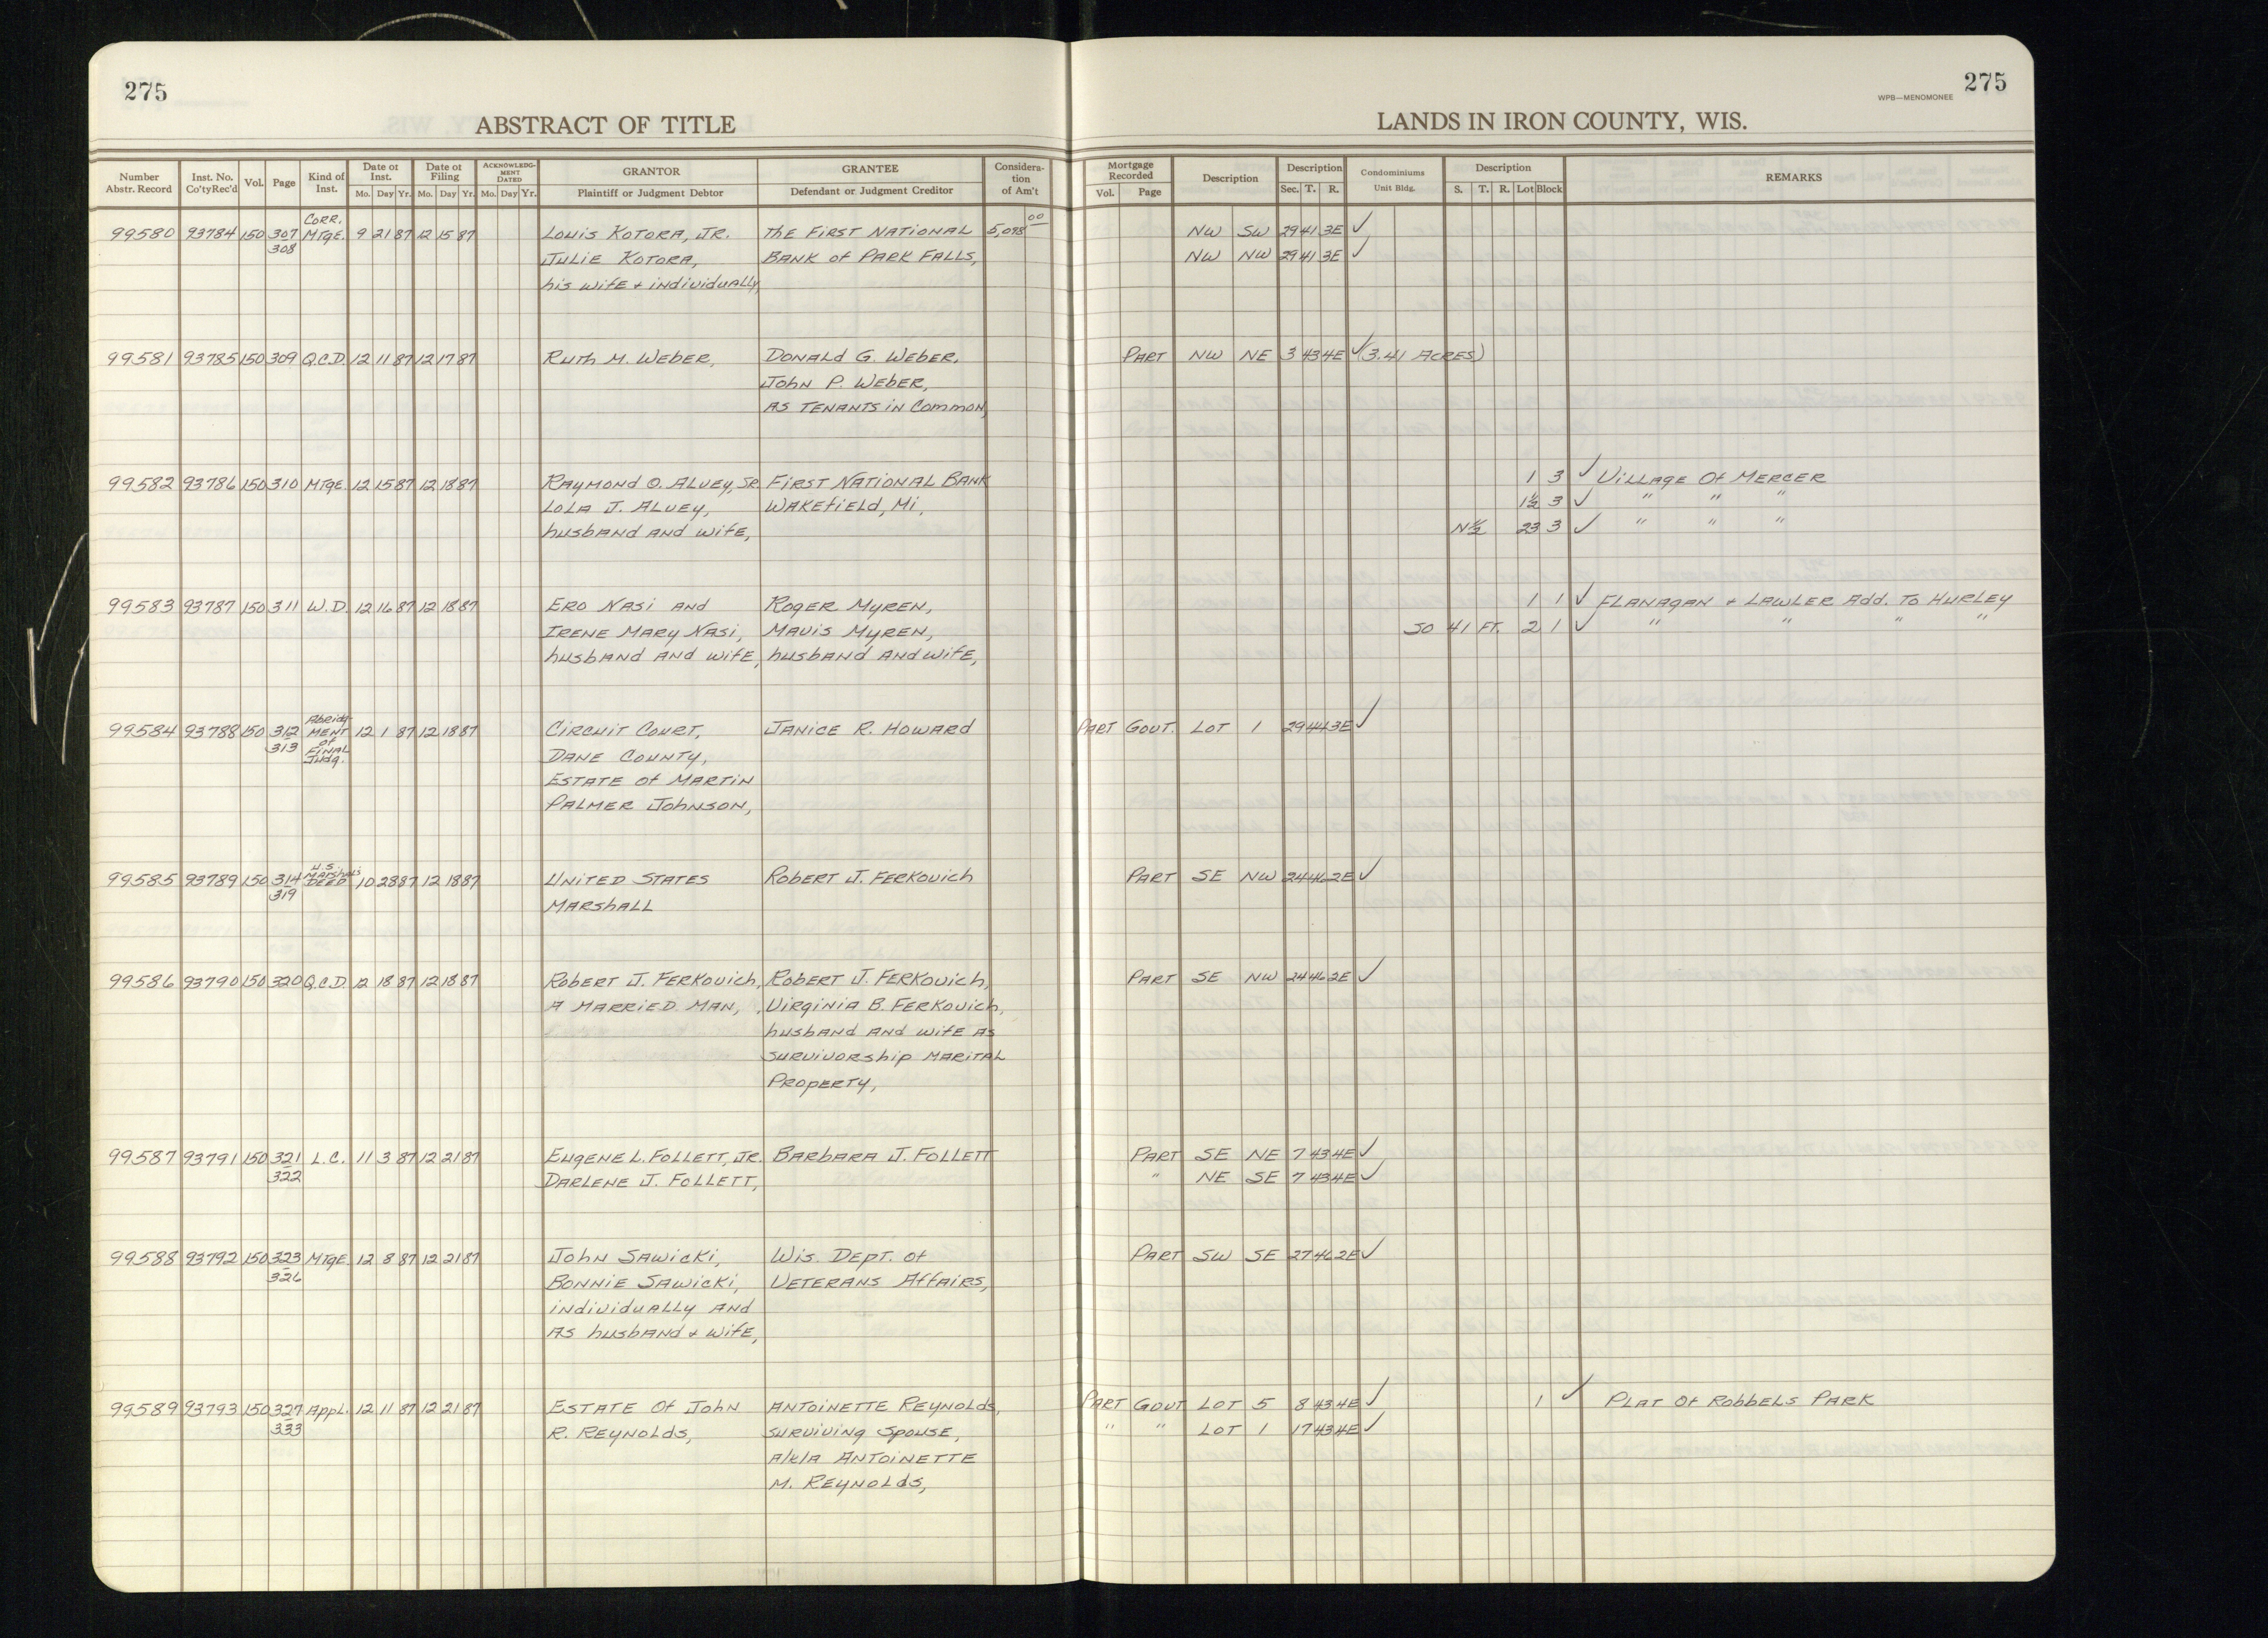 275
ABSTRACT OF TITLE
Number Abstr. Record | Inst. No. Co'tyRec'd | Vol. | Page | Kind of Inst. | Date of Inst. Mo. Day Yr. | Date of Filing Mo. Day Yr. | ACKNOWLEDGMENT DATED Mo. Day Yr. | GRANTOR Plaintiff or Judgment Debtor | GRANTEE Defendant or Judgment Creditor | Consideration of Am't
CORR.
99580 93784 150 307 MTGE. 9 21 87 12 15 87 LOUIS KOTORA, JR. THE FIRST NATIONAL 5,098 00
308 JULIE KOTORA, BANK OF PARK FALLS,
his wife + individually,
99581 93785 150 309 Q.C.D. 12 11 87 12 17 87 RUTH M. WEBER, DONALD G. WEBER,
JOHN P. WEBER,
AS TENANTS IN COMMON,
99582 93786 150 310 MTGE. 12 15 87 12 18 87 RAYMOND O. ALVEY, SR FIRST NATIONAL BANK
LOLA J. ALVEY, WAKEFIELD, MI,
husband and wife,
99583 93787 150 311 W.D. 12 16 87 12 18 87 ERO NASI AND ROGER MYREN,
IRENE MARY NASI, MAVIS MYREN,
husband and wife, husband and wife,
99584 93788 150 312 Abridg- 12 1 87 12 18 87 CIRCUIT COURT, JANICE R. HOWARD
313 MENT DANE COUNTY,
of ESTATE OF MARTIN
FINAL PALMER JOHNSON,
Judg.
U.S.
MARSHAL'S
99585 93789 150 314 DEED 10 28 87 12 18 87 UNITED STATES ROBERT J. FERKOVICH
319 MARSHALL
99586 93790 150 320 Q.C.D. 12 18 87 12 18 87 ROBERT J. FERKOVICH, ROBERT J. FERKOVICH,
A MARRIED MAN, VIRGINIA B. FERKOVICH,
husband and wife as
SURVIVORSHIP MARITAL
PROPERTY,
99587 93791 150 321 L.C. 11 3 87 12 21 87 EUGENE L. FOLLETT, JR. BARBARA J. FOLLETT
322 DARLENE J. FOLLETT,
99588 93792 150 323 MTGE 12 8 87 12 21 87 JOHN SAWICKI, WIS. DEPT. OF
326 BONNIE SAWICKI, VETERANS AFFAIRS,
individually and
as husband + wife,
99589 93793 150 327 APPL. 12 11 87 12 21 87 ESTATE OF JOHN ANTOINETTE REYNOLDS,
333 R. REYNOLDS, SURVIVING SPOUSE,
A/K/A ANTOINETTE
M. REYNOLDS,
275
WPB—MENOMONEE
LANDS IN IRON COUNTY, WIS.
Mortgage Recorded Vol. Page | Description | Description Sec. T. R. | Condominiums Unit Bldg. | Description S. T. R. Lot Block | REMARKS
NW SW 29 41 3E ✓
NW NW 29 41 3E ✓
PART NW NE 3 43 4E ✓ (3.41 ACRES)
1 3 ✓ VILLAGE OF MERCER
1½ 3 ✓ " " "
N½ 23 3 ✓ " " "
1 1 ✓ FLANAGAN + LAWLER ADD. TO HURLEY
SO 41 FT. 2 1 ✓ " " " "
PART GOVT. LOT 1 29 44 3E ✓
PART SE NW 24 46 2E ✓
PART SE NW 24 46 2E ✓
PART SE NE 7 43 4E ✓
" NE SE 7 43 4E ✓
PART SW SE 27 46 2E ✓
PART GOVT LOT 5 8 43 4E ✓ 1 ✓ PLAT OF ROBBELS PARK
" " LOT 1 17 43 4E ✓